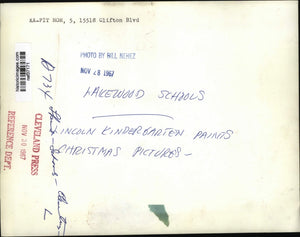 AA-PIT NGK, 5, 15518 Clifton Blvd
PHOTO BY BILL NEHEZ
NOV 28 1967
LAKEWOOD SCHOOLS
LINCOLN KINDERGARTEN PAINTS
CHRISTMAS PICTURES-
CLEVELAND PRESS
NOV 29 1967
REFERENCE DEPT.